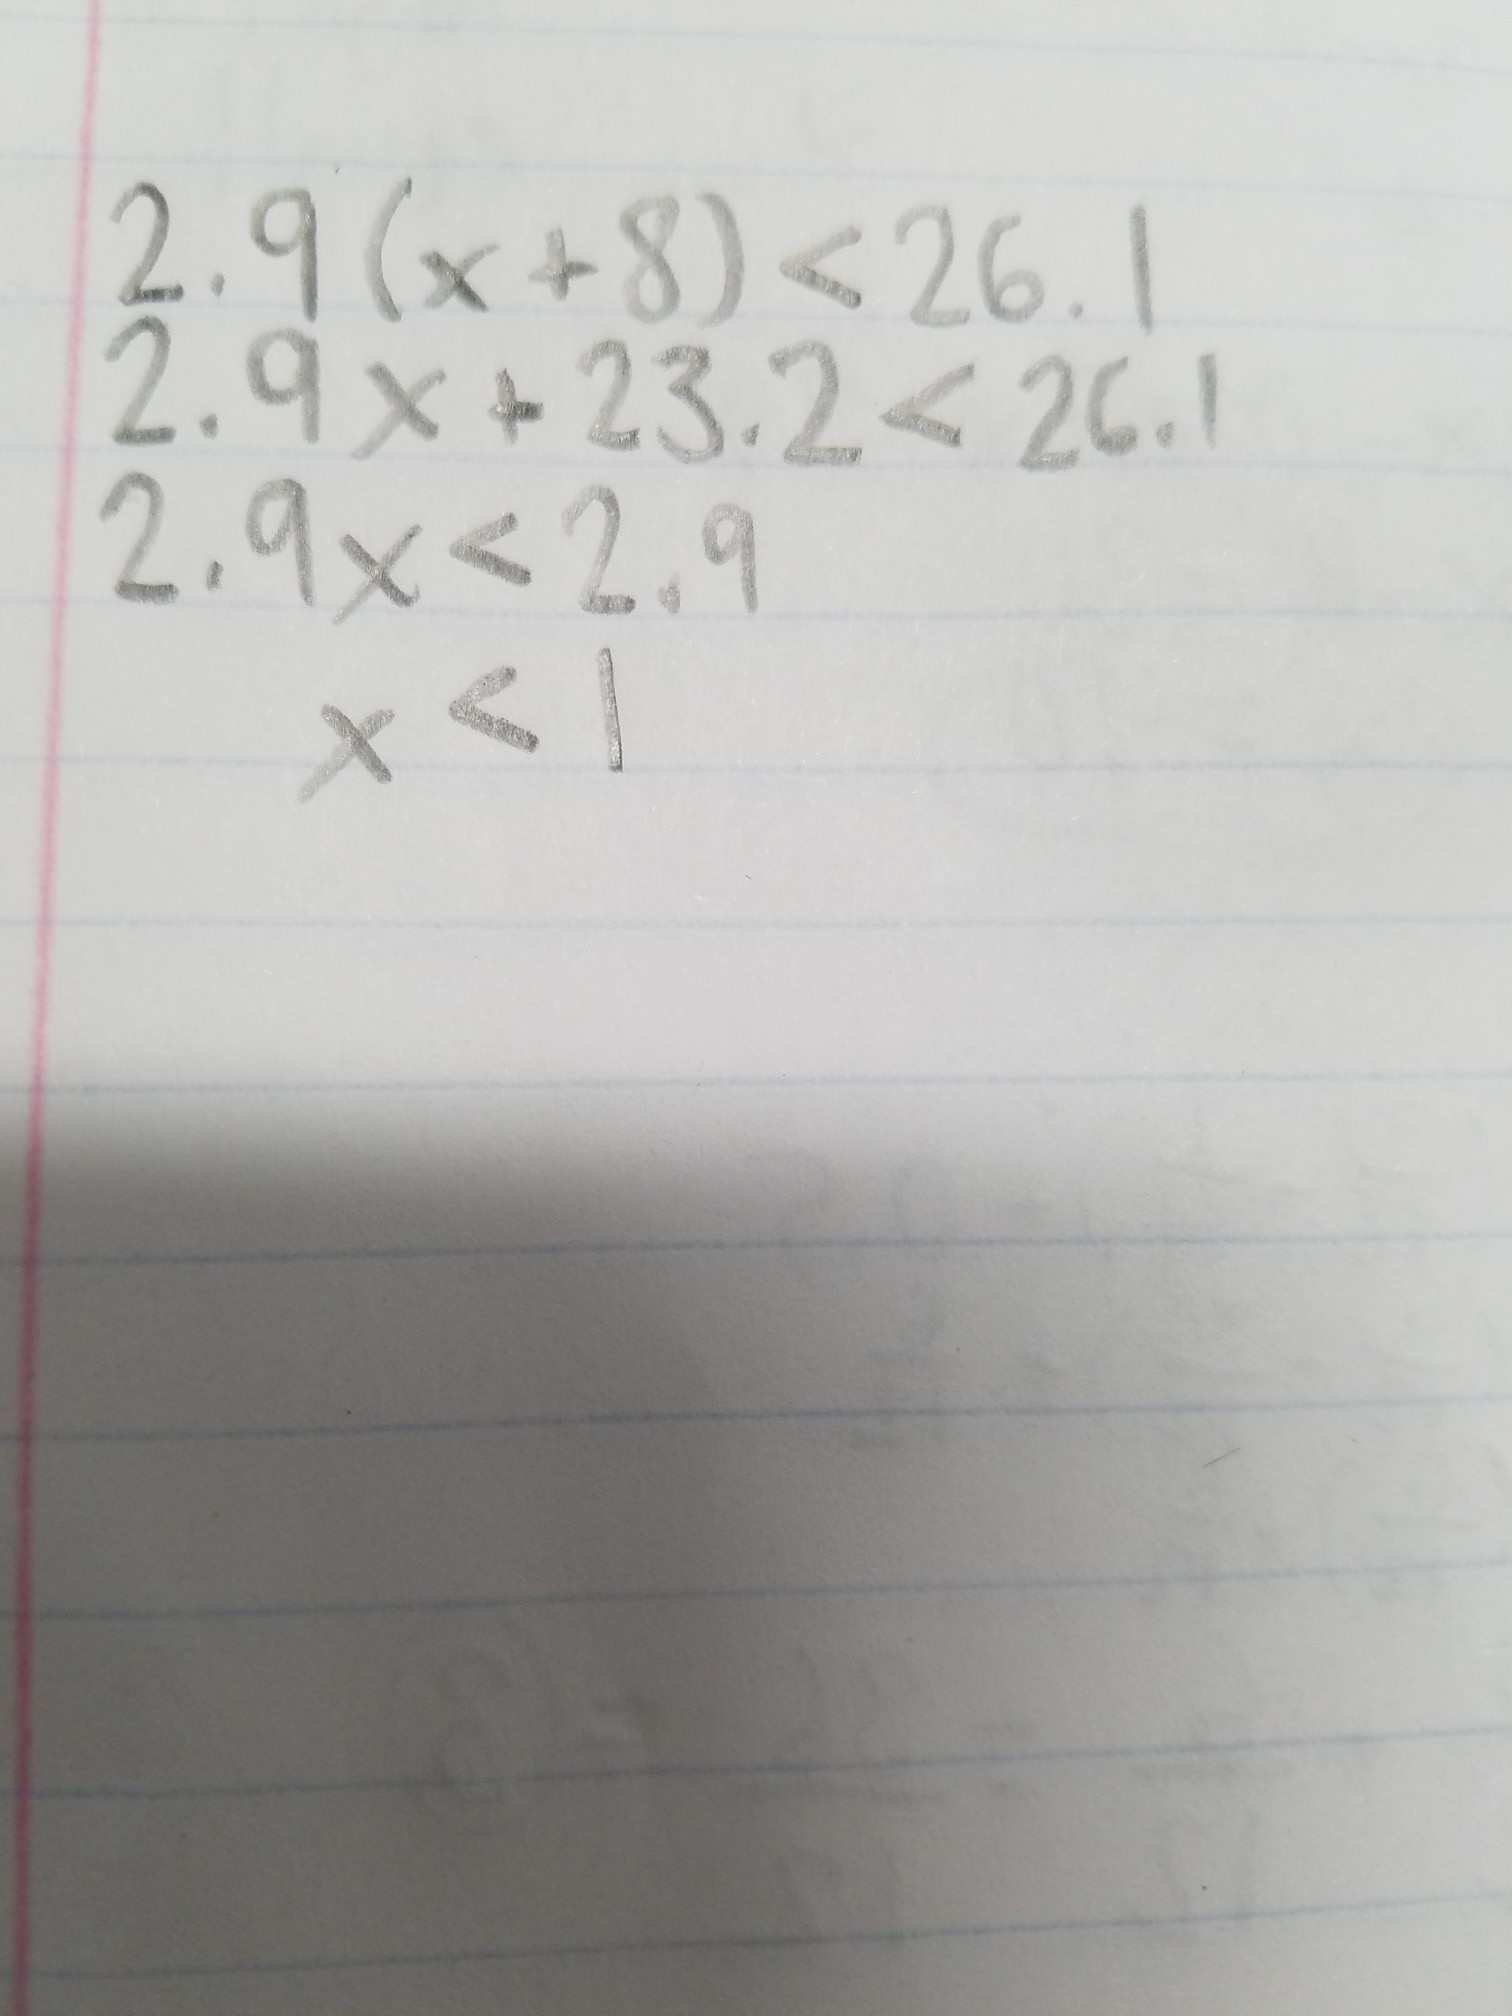 2.9(x+8)<26.1
2.9x+23.2<26.1
2.9x<2.9
x<1